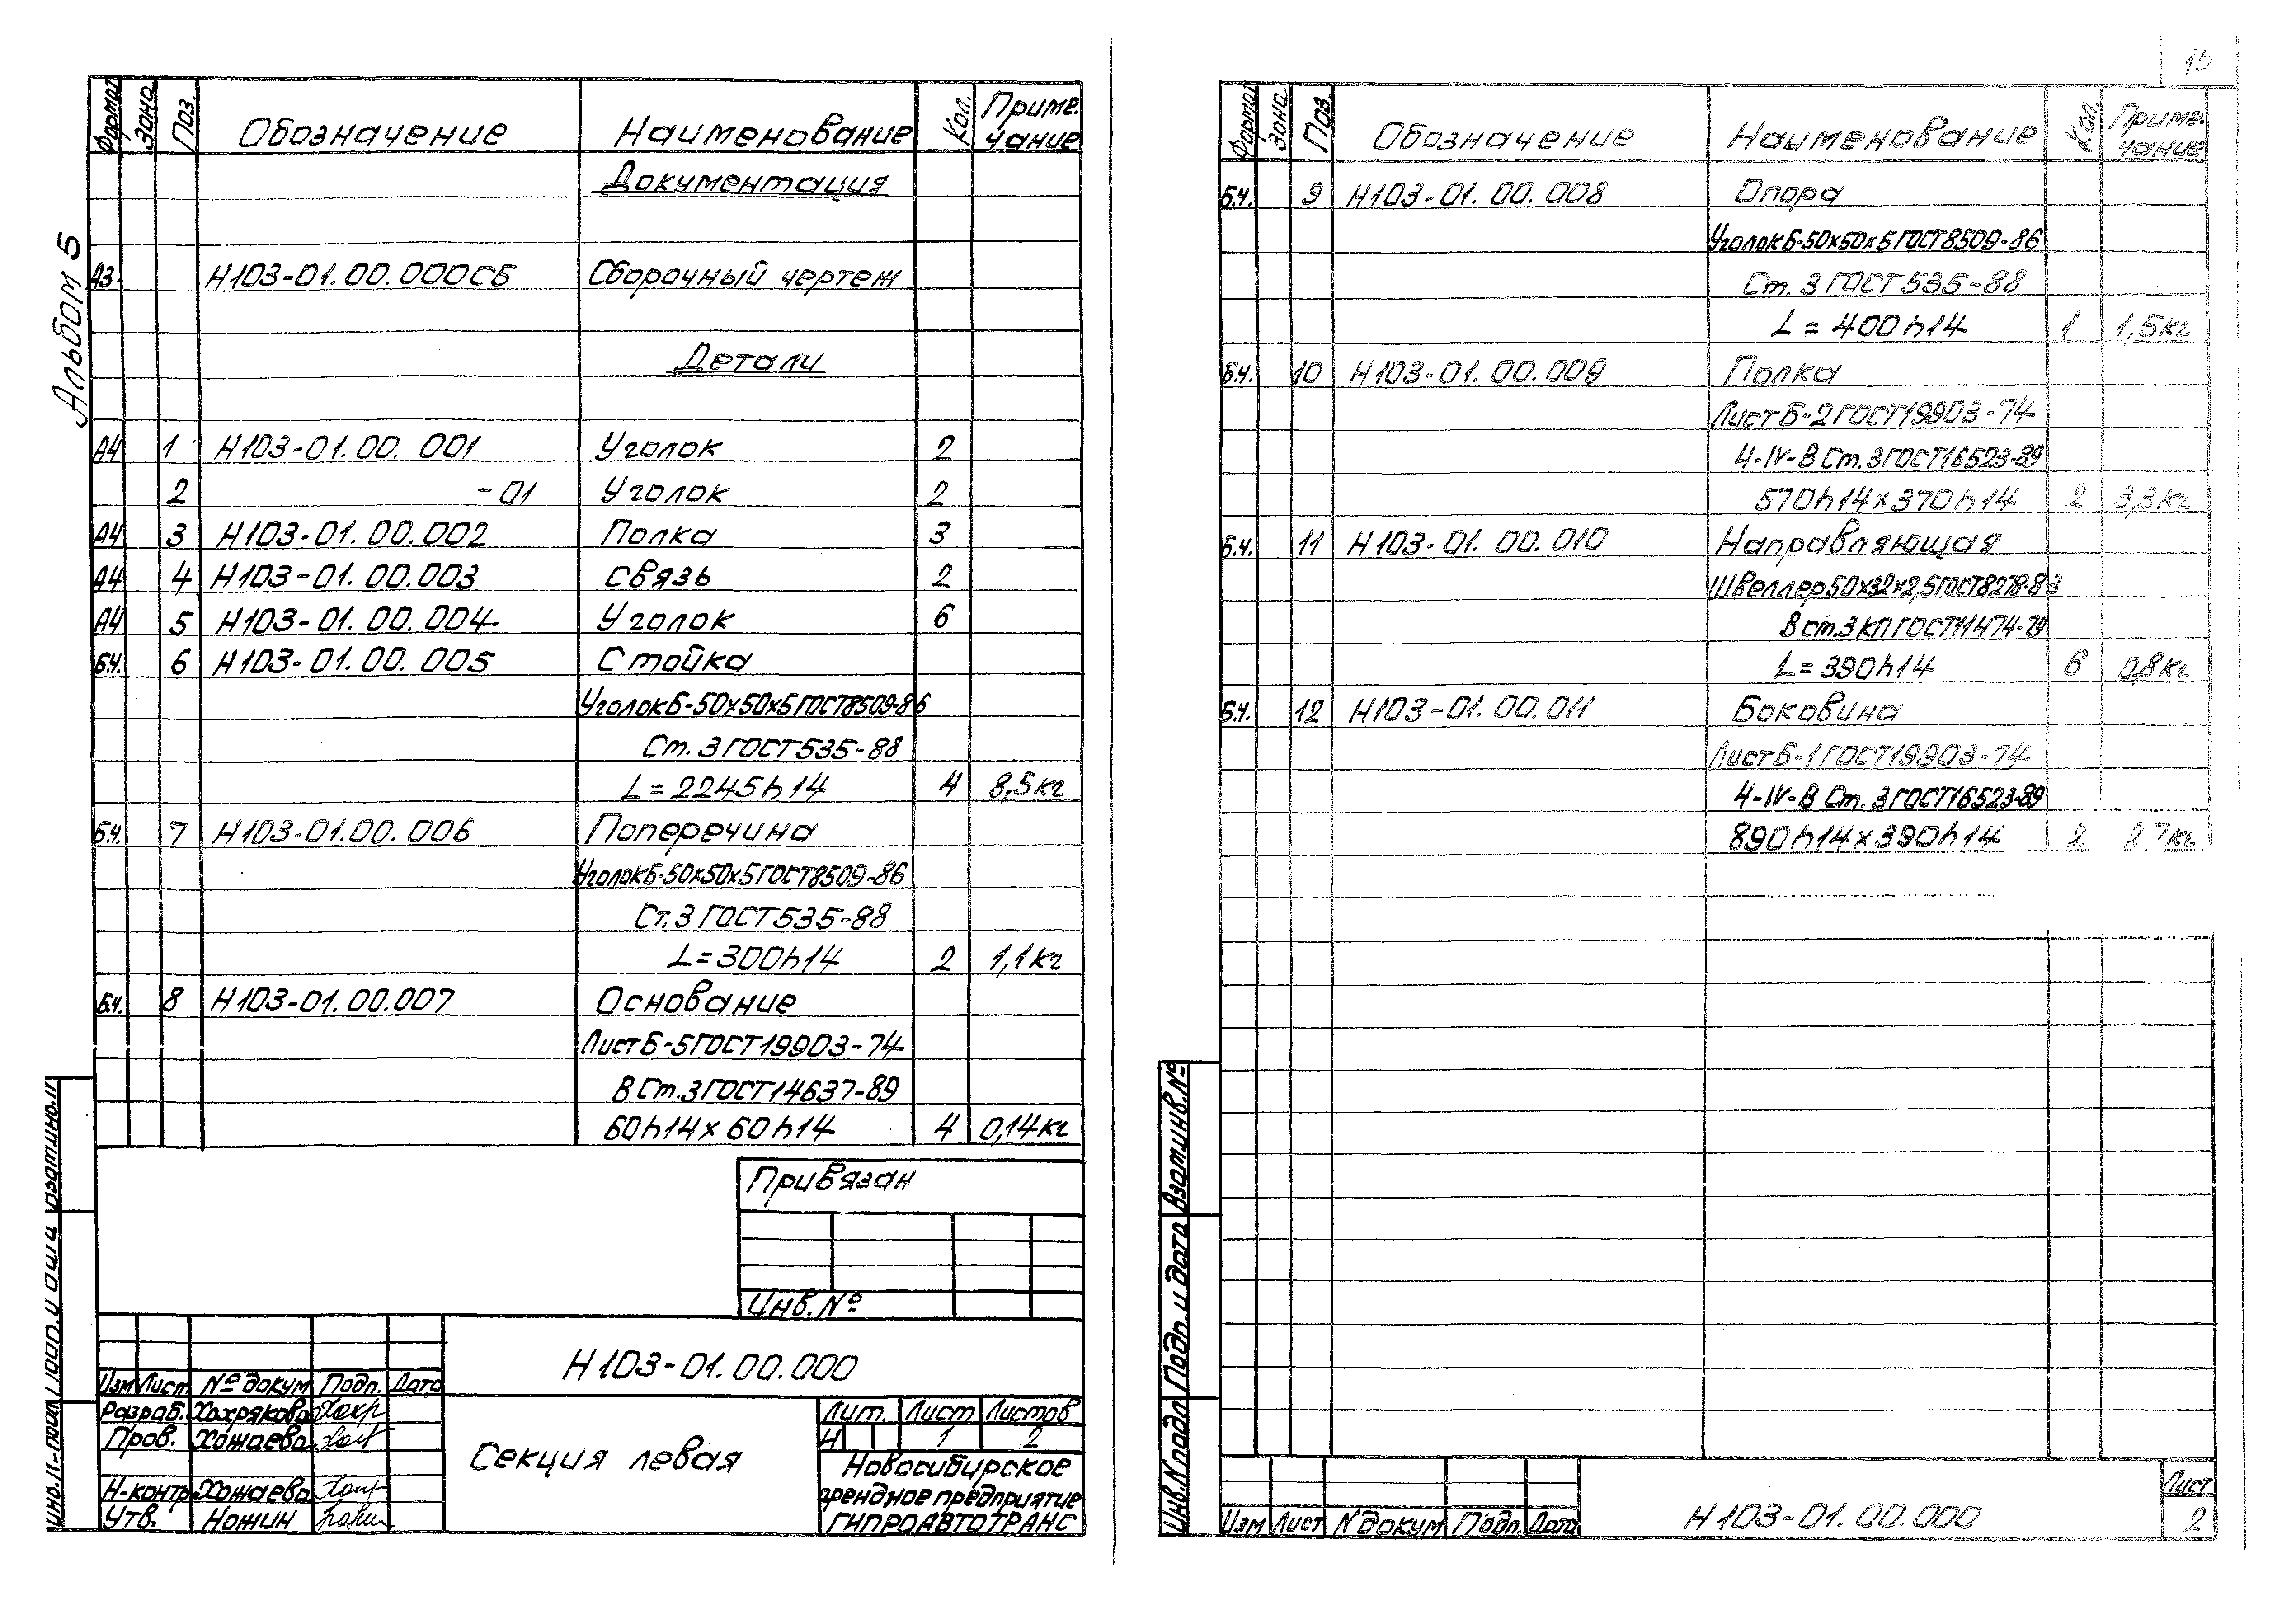 Альбом 5
Формат Зона Поз. Обозначение Наименование Кол. Приме-чание
Документация
А3 Н103-01.00.000СБ Сборочный чертеж
Детали
А4 1 Н103-01.00.001 Уголок 2
2 -01 Уголок 2
А4 3 Н103-01.00.002 Полка 3
А4 4 Н103-01.00.003 Связь 2
А4 5 Н103-01.00.004 Уголок 6
Б.Ч. 6 Н103-01.00.005 Стойка
Уголок Б-50х50х5 ГОСТ 8509-86
Ст.3 ГОСТ 535-88
L=2245h14 4 8,5кг
Б.Ч. 7 Н103-01.00.006 Поперечина
Уголок Б-50х50х5 ГОСТ 8509-86
Ст.3 ГОСТ 535-88
L=300h14 2 1,1кг
Б.Ч. 8 Н103-01.00.007 Основание
Лист Б-5 ГОСТ 19903-74
В Ст.3 ГОСТ 14637-89
60h14х60h14 4 0,14кг
Привязан
Инв.№
Н103-01.00.000
Изм Лист № докум Подп. Дата
Разраб. Хохрякова
Пров. Хажаева
Н-контр Хажаева
Утв. Ножин
Секция левая
Лит. Лист Листов
И 1 2
Новосибирское
арендное предприятие
ГИПРОАВТОТРАНС
15
Формат Зона Поз. Обозначение Наименование Кол. Приме-чание
Б.Ч. 9 Н103-01.00.008 Опора
Уголок Б-50х50х5 ГОСТ 8509-86
Ст.3 ГОСТ 535-88
L=400h14 1 1,5кг
Б.Ч. 10 Н103-01.00.009 Полка
Лист Б-2 ГОСТ 19903-74
4-IV-В Ст.3 ГОСТ 16523-89
570h14х370h14 2 3,3кг
Б.Ч. 11 Н103-01.00.010 Направляющая
Швеллер 50х32х2,5 ГОСТ 8278-83
В ст.3 кп ГОСТ 11474-79
L=390h14 6 0,8кг
Б.Ч. 12 Н103-01.00.011 Боковина
Лист Б-1 ГОСТ 19903-74
4-IV-В Ст.3 ГОСТ 16523-89
890h14х390h14 2 2,7кг
Инв.N подл Подп. и дата Взам.инв.№
Изм Лист N докум Подп. Дата
Н103-01.00.000
Лист
2